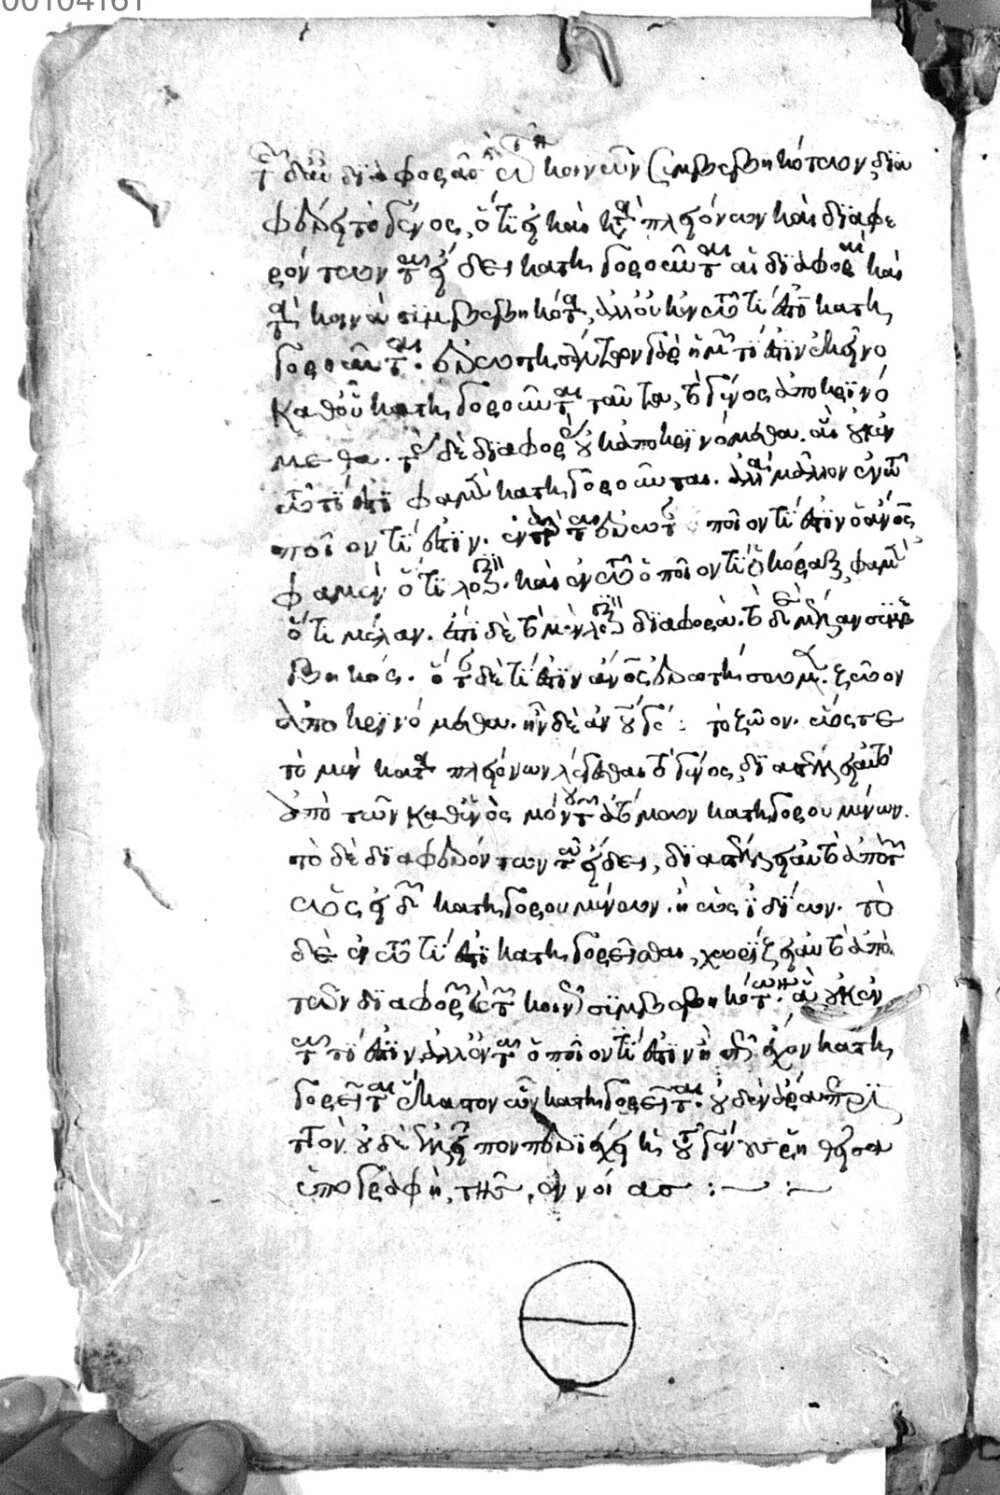 00104161
τῶν δὲ αὖ διαφορῶν καὶ τῶν κοινῶν συμβεβηκότων, δια
φέρει τὸ γένος, ὅτι εἰ καὶ κατὰ πλειόνων καὶ διαφε
ρόντων τῷ εἴδει κατηγοροῦνται αἱ διαφοραὶ καὶ
τὰ κοινὰ συμβεβηκότα, ἀλλ' οὐκ ἐν τῷ τί ἐστι κατη
γοροῦνται. ἐρωτησάντων γὰρ ἡμῶν τί ἐστιν ἐκεῖνο
καθ' οὗ κατηγοροῦνται ταῦτα, τὸ γένος ἀποκρινό
μεθα. τὰς δὲ διαφορὰς οὐκ ἀποκρινόμεθα. οὐ γὰρ ἐν
τῷ τί ἐστι φαμὲν κατηγοροῦνται. ἀλλὰ μᾶλλον ἐν τῷ
ποῖόν τί ἐστιν. ἐν γὰρ τῷ ἐρωτᾶν ποῖόν τί ἐστιν ὁ ἄνος
φαμὲν ὅτι λογικόν. καὶ ἐν τῷ ποῖόν τι ὁ κόραξ, φαμὲν
ὅτι μέλαν. ἐστὶ δὲ τὸ μὲν λογικὸν διαφορά. τὸ δὲ μέλαν συμβε
βηκός. ὅταν δὲ τί ἐστιν ὁ ἄνος ἐρωτηθῶμεν. ζῶον
ἀποκρινόμεθα. ἦν δὲ ἀνου γένος: τὸ ζῶον. ὥστε
τὸ μὲν κατὰ πλειόνων λέγεσθαι τὸ γένος, διαστέλλει αὐτὸ
ἀπὸ τῶν καθ' ἑνὸς μόνου τῶν ἀτόμων κατηγορουμένων.
τὸ δὲ διαφερόντων τῷ εἴδει, διαστέλλει αὐτὸ ἀπὸ τῶν
ὡς εἰδῶν κατηγορουμένων. ἢ ὡς ἰδίων. τὸ
δὲ ἐν τῷ τί ἐστι κατηγορεῖσθαι, χωρίζει αὐτὸ ἀπὸ
τῶν διαφορῶν καὶ τῶν κοινῇ συμβεβηκότων. ἃ οὐκ ἐν
τῷ τί ἐστιν, ἀλλ' ἐν τῷ ὁποῖόν τί ἐστιν ἢ πῶς ἔχον κατη
γορεῖται ἕκαστον ὧν κατηγορεῖται. οὐδὲν ἄρα περιτ
τὸν οὐδὲ ἐλλεῖπον περιέχει ἡ τοῦ γένους ῥηθεῖσα
ὑπογραφὴ, τῆς ἐννοίας :~ :~